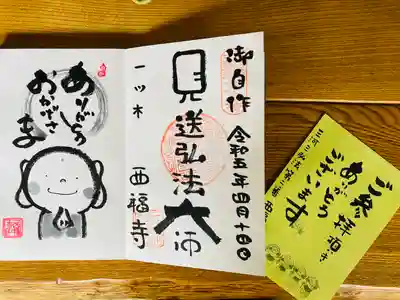 御自作
令和五年四月十日
見送弘法大師
一ツ木 西福寺
ありがとう
おかげさま
ご参拝
ありがとう
ございます